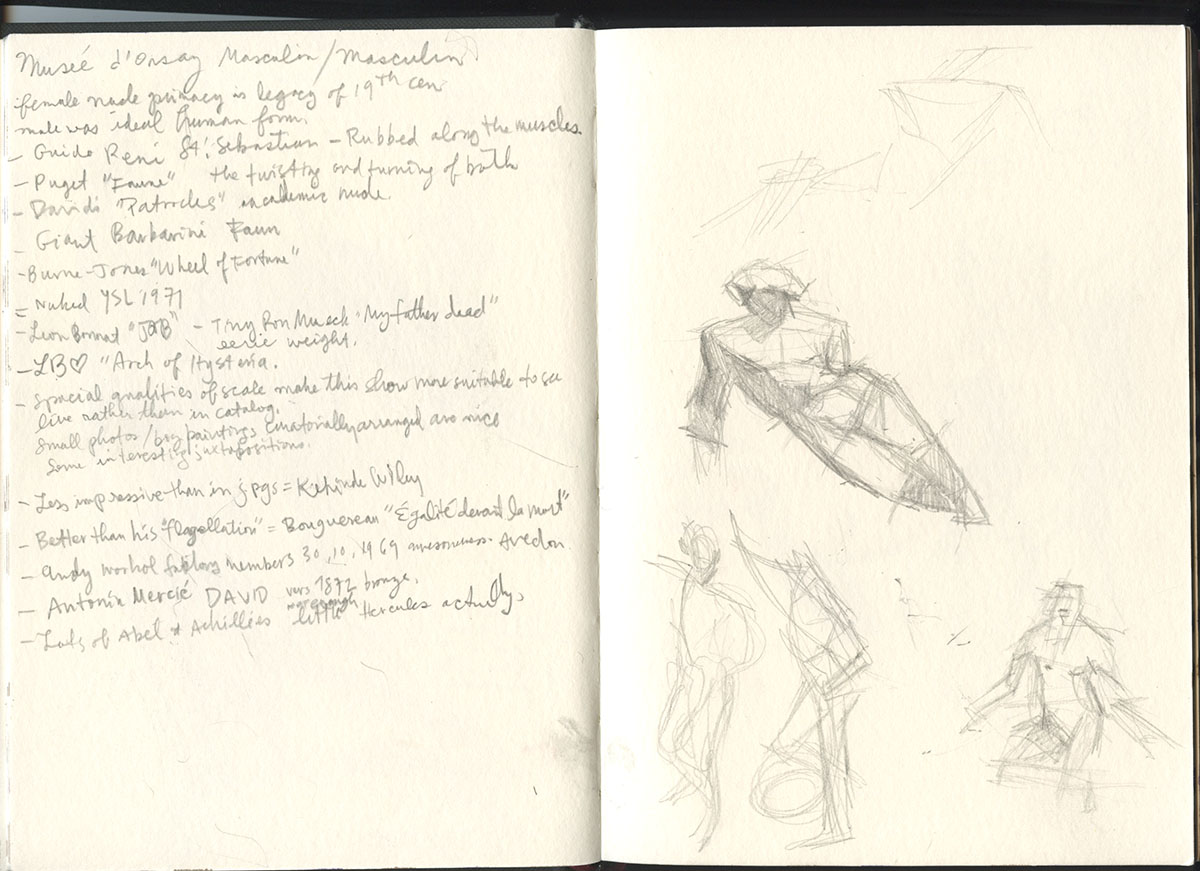 Museé d'Orsay Masculin/Masculin
female nude primacy is legacy of 19th cen
male was ideal human form.
- Guido Reni St. Sebastian - Rubbed along the muscles.
- Puget "Faune" the twisting and turning of both
- David's "Patrocles" academic nude.
- Giant Barbarini Faun
- Burne-Jones "Wheel of Fortune"
- Naked YSL 1971
- Leon Bonnat "JOB" - Tiny Ron Mueck "My father dead"
eerie weight.
- LB♡ "Arch of Hysteria.
- Spacial qualities of scale make this show more suitable to see
live rather than in catalog.
Small photos/big paintings curatorially arranged are nice
Some interesting juxtapositions.
- Less impressive than in jpgs = Kehinde Wiley
- Better than his "flagellation" = Bouguereau "Égalité devant la mort"
- Andy Warhol factory members 30, 10, 1969 awesomeness. Avedon.
- Antonin Mercié DAVID vers 1872 bronze.
- Lots of Abel & Achilles little Hercules actually.